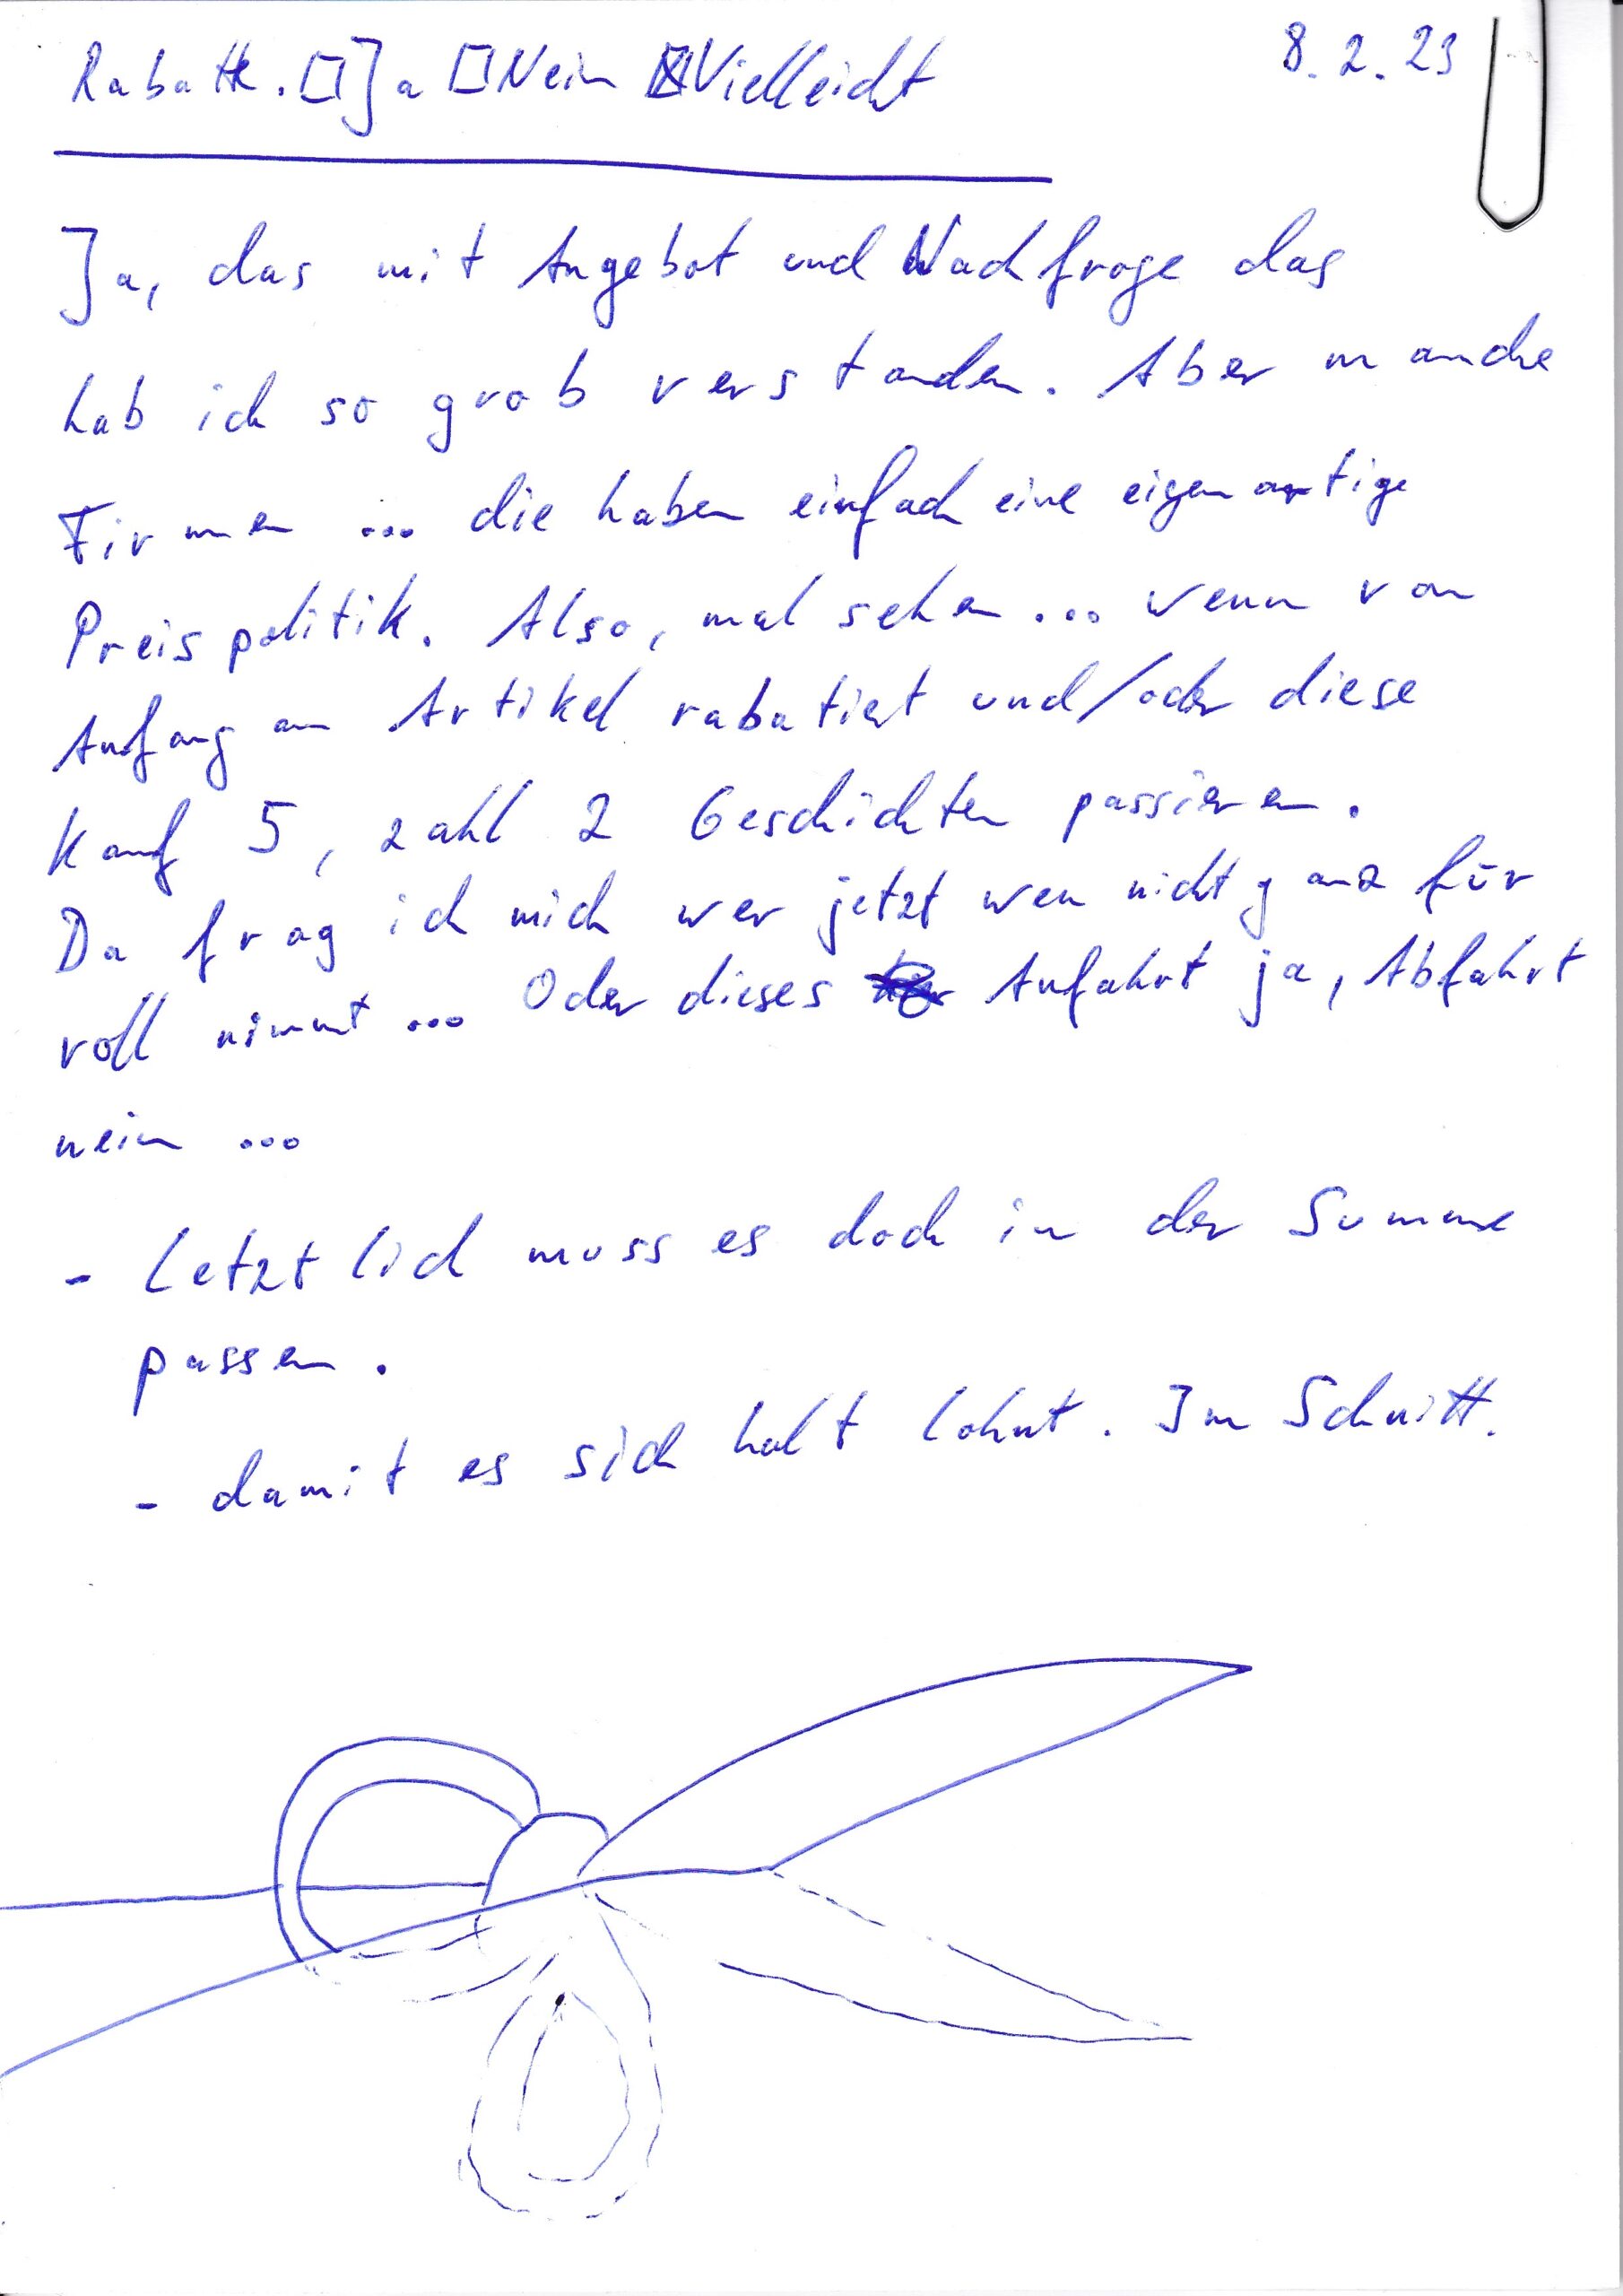 Rabatt. ☐ Ja ☐ Nein ☒ Vielleicht
8.2.23
Ja, das mit Angebot und Nachfrage das
hab ich so grob verstanden. Aber manche
Firmen ... die haben einfach eine eigenartige
Preispolitik. Also, mal sehen ... wenn von
Anfang an Artikel rabatiert und/oder diese
Kauf 5, zahl 2 Geschichten passieren.
Da frag ich mich wer jetzt wen nicht ganz für
voll nimmt ... Oder dieses Anfahrt ja, Abfahrt
nein ...
- Letztlich muss es doch in der Summe
passen.
- damit es sich halt lohnt. Im Schnitt.